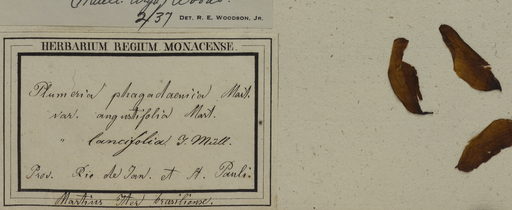 2/37 DET. R. E. WOODSON, JR.
HERBARIUM REGIUM MONACENSE.
Plumeria phagadaenica Mart.
var. angustifolia Mart.
" lancifolia J. Müll.
Prov. Rio de Jan. et S. Pauli.
Martius Iter brasiliense.